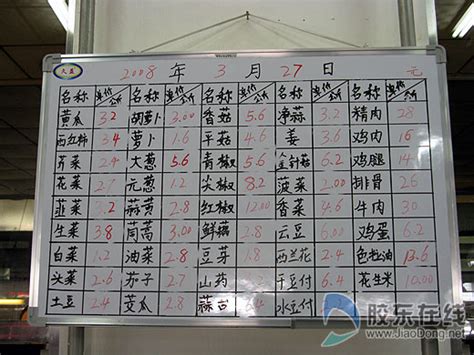 大盛
2008 年 3 月 27 日 元
名称 单价/公斤 名称 单价/公斤 名称 单价/公斤 名称 单价/公斤 名称 单价/公斤
黄瓜 3.2 胡萝卜 3.00 香菇 5.6 净蒜 3.2 精肉 28
西红柿 3.4 萝卜 1.2 平菇 4.6 姜 3.6 鸡肉 16
芹菜 2.4 大葱 5.6 青椒 5.6 金针菇 6.2 鸡腿 14
花菜 2.7 元葱 1.2 尖椒 8.2 菠菜 2.4 排骨 26
韭菜 3.2 蒜黄 2.8 红椒 12.00 香菜 4.6 牛肉 30
生菜 3.8 茼蒿 3.00 鲜藕 2.8 云豆 6.00 鸡蛋 6.2
白菜 1.2 油菜 2.8 豆芽 1.8 西兰花 6.4 色拉油 13.6
头菜 2.6 茄子 2.7 山药 平豆付 2.4 花生米 10.00
土豆 2.4 茭瓜 2.8 蒜苔 6.4 水豆付
胶东在线
www.JiaoDong.net